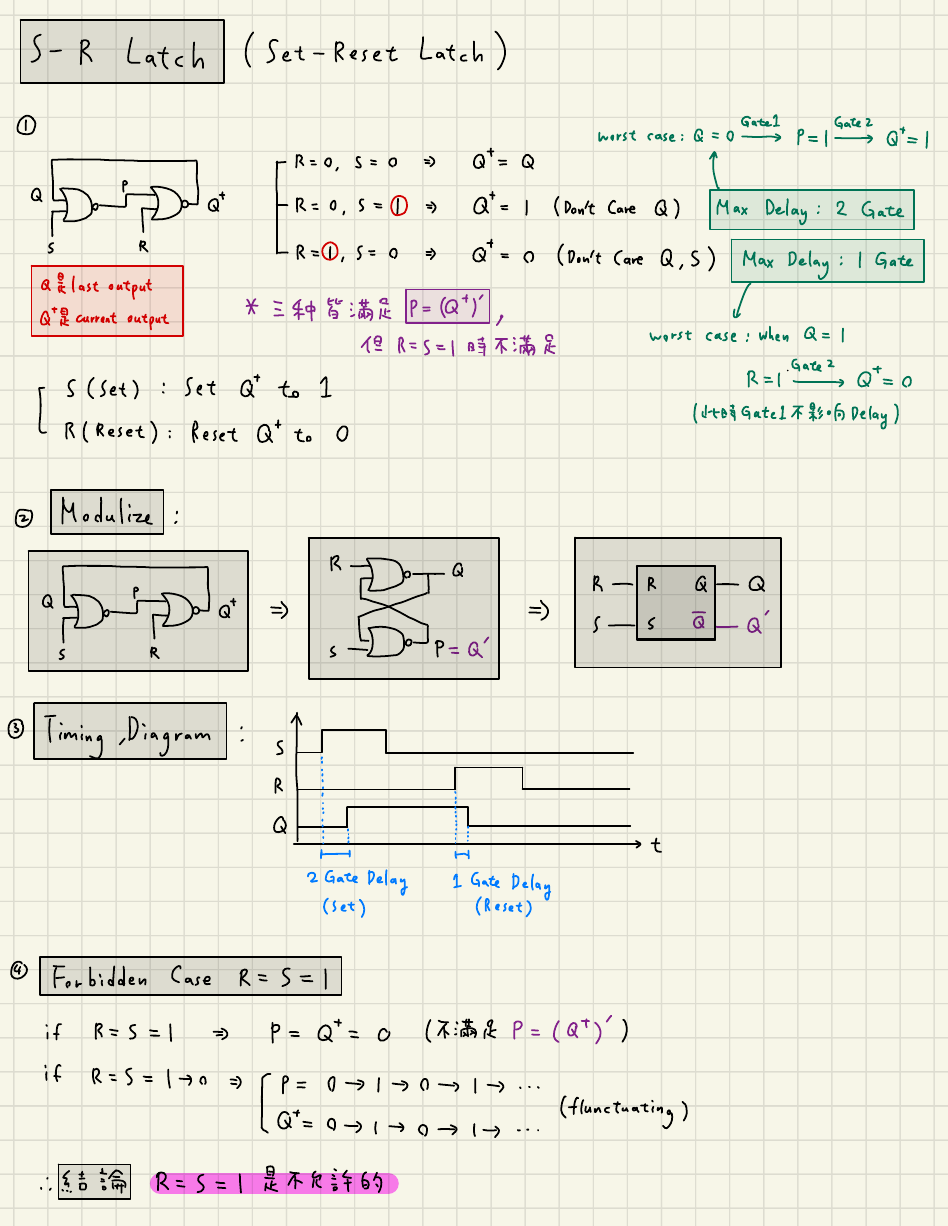 S-R Latch (Set-Reset Latch)
①
Q P Q⁺
S R
R=0, S=0 ⇒ Q⁺= Q
R=0, S=1 ⇒ Q⁺= 1 (Don't Care Q)
R=1, S=0 ⇒ Q⁺= 0 (Don't Care Q, S)
worst case: Q=0 Gate1→ P=1 Gate2→ Q⁺=1
Max Delay: 2 Gate
Max Delay: 1 Gate
worst case: when Q=1
R=1 Gate2→ Q⁺=0
(此時Gate1不影响Delay)
Q是last output
Q⁺是current output
* 三种皆滿足 P=(Q⁺)′,
但 R=S=1時不滿足
S (Set) : Set Q⁺ to 1
R (Reset) : Reset Q⁺ to 0
② Modulize :
Q P Q⁺
S R
⇒
R Q
S P = Q′
⇒
R R Q Q
S S Q̅ Q′
③ Timing ,Diagram :
S
R
Q
t
2 Gate Delay
(Set)
1 Gate Delay
(Reset)
④ Forbidden Case R=S=1
if R=S=1 ⇒ P = Q⁺ = 0 (不滿足 P=(Q⁺)′)
if R=S=1→0 ⇒ P= 0→1→0→1→ ···
Q⁺= 0→1→0→1→ ···
(flunctuating)
∴ 結論 R=S=1 是不允許的